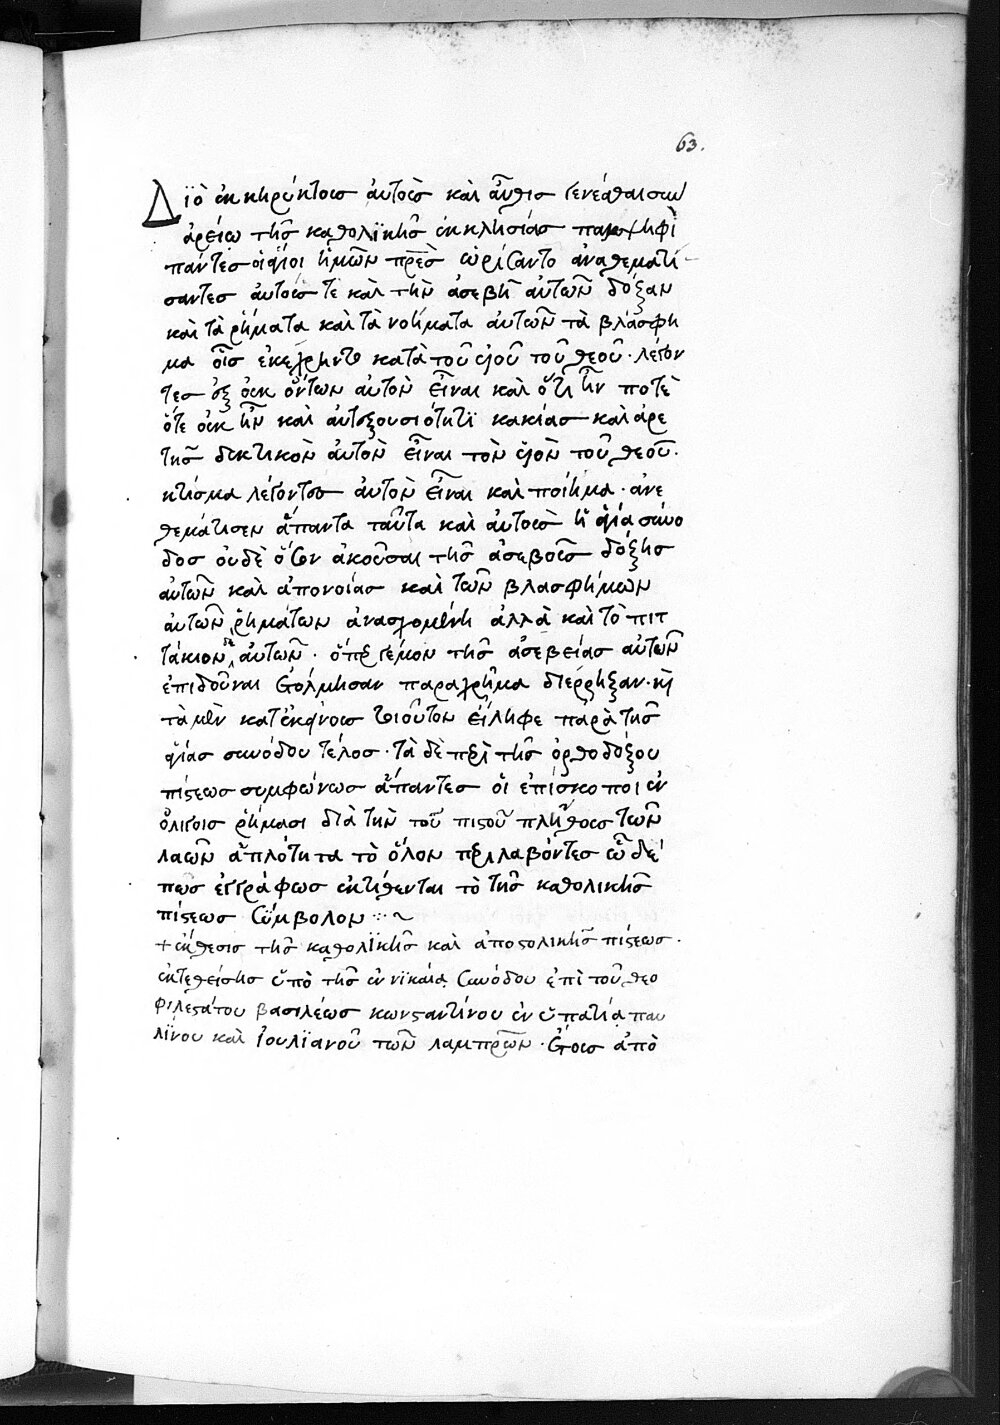 63.
Διὸ ἐκκηρύκτους αὐτοὺς καὶ αὖθις γενέσθαι σὺν
ἀρείω τῆς καθολϊκῆς ἐκκλησίας παμψηφὶ
πάντες οἱ ἅγιοι ἡμῶν πρες ὡρίσαντο ἀναθεματί
σαντες αὐτούς τε καὶ τὴν ἀσεβῆ αὐτῶν δόξαν
καὶ τὰ ῥήματα καὶ τὰ νοήματα αὐτῶν τὰ βλάσφη
μα οἷς ἐκέχρηντο κατὰ τοῦ υἱοῦ τοῦ θεοῦ · λέγον
τες ἐξ οὐκ ὄντων αὐτὸν εἶναι καὶ ὅτι ἦν ποτὲ
ὅτε οὐκ ἦν καὶ αὐτεξουσιότητϊ κακίας καὶ ἀρε
τῆς δεκτικὸν αὐτὸν εἶναι τὸν υἱὸν τοῦ θεοῦ.
κτίσμα λέγοντες αὐτὸν εἶναι καὶ ποίημα · ἀνε
θεμάτισεν ἅπαντα ταῦτα καὶ αὐτοὺς ἡ ἁγία σύνο
δος οὐδὲ ὅσον ἀκοῦσαι τῆς ἀσεβοῦς δόξης
αὐτῶν καὶ ἀπονοίας καὶ τῶν βλασφήμων
αὐτῶν ῥημάτων ἀνασχομένη ἀλλὰ καὶ τὸ πιτ
τάκιον δὲ αὐτῶν · ὅπερ γέμον τῆς ἀσεβείας αὐτῶν
ἐπιδοῦναι ἐτόλμησαν παραχρῆμα διέρρηξαν · καὶ
τὰ μὲν κατ ἐκείνους τοιοῦτον εἴληφε παρὰ τῆς
ἁγίας συνόδου τέλος · τὰ δὲ περὶ τῆς ὀρθοδόξου
πίστεως συμφώνως ἅπαντες οἱ ἐπίσκοποι ἐν
ὀλίγοις ῥήμασι διὰ τὴν τοῦ πιστοῦ πλήθους τῶν
λαῶν ἁπλότητα τὸ ὅλον περιλαβόντες ὧδέ
πως ἐγγράφως ἐκτίθενται τὸ τῆς καθολικῆς
πίστεως σύμβολον ∻ ~
+ ἔκθεσις τῆς καθολϊκῆς καὶ ἀποστολικῆς πίστεως ·
ἐκτεθείσης ὑπὸ τῆς ἐν νϊκαία συνόδου ἐπὶ τοῦ θεο
φιλεστάτου βασιλέως κωνσταντίνου ἐν ὑπατία παυ
λίνου καὶ ἰουλϊανοῦ τῶν λαμπρῶν · ἔτους ἀπὸ